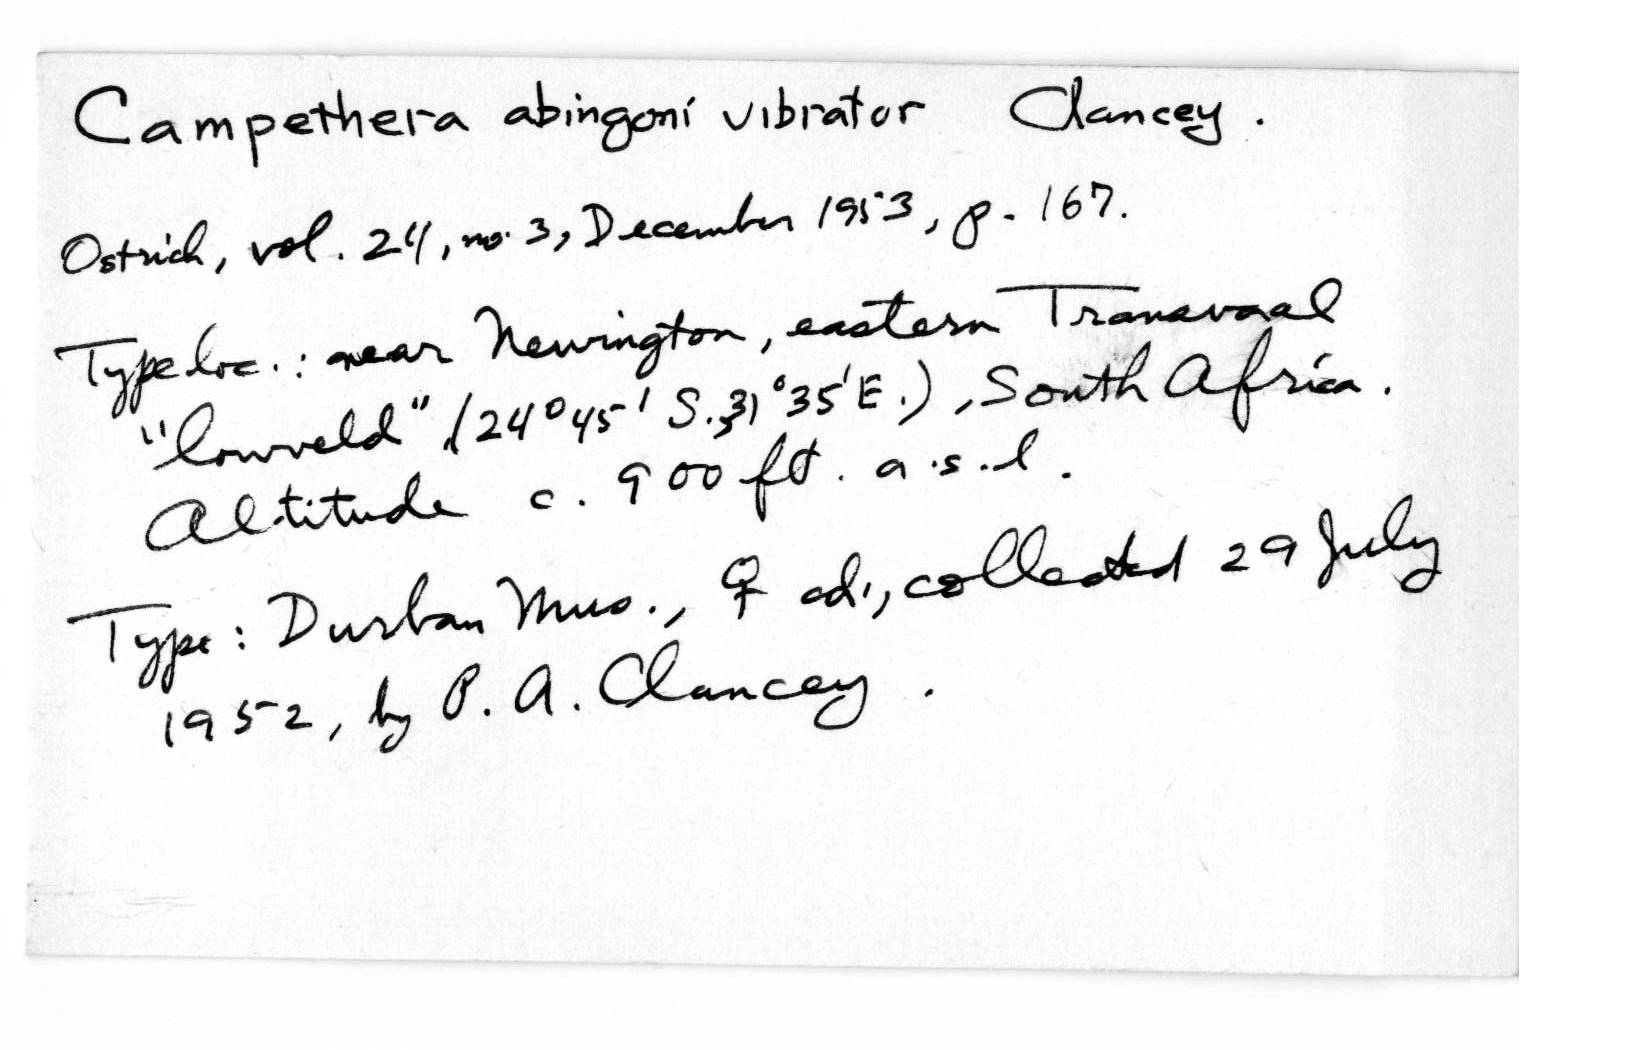 Campethera abingoni vibrator Clancey.
Ostrich, vol. 24, no. 3, December 1953, p. 167.
Type loc.: near Newington, eastern Transvaal
"lowveld" (24°45' S. 31°35' E.), South Africa.
Altitude c. 900 ft. a.s.l.
Type: Durban Mus., ♀ ad., collected 29 July
1952, by P. A. Clancey.